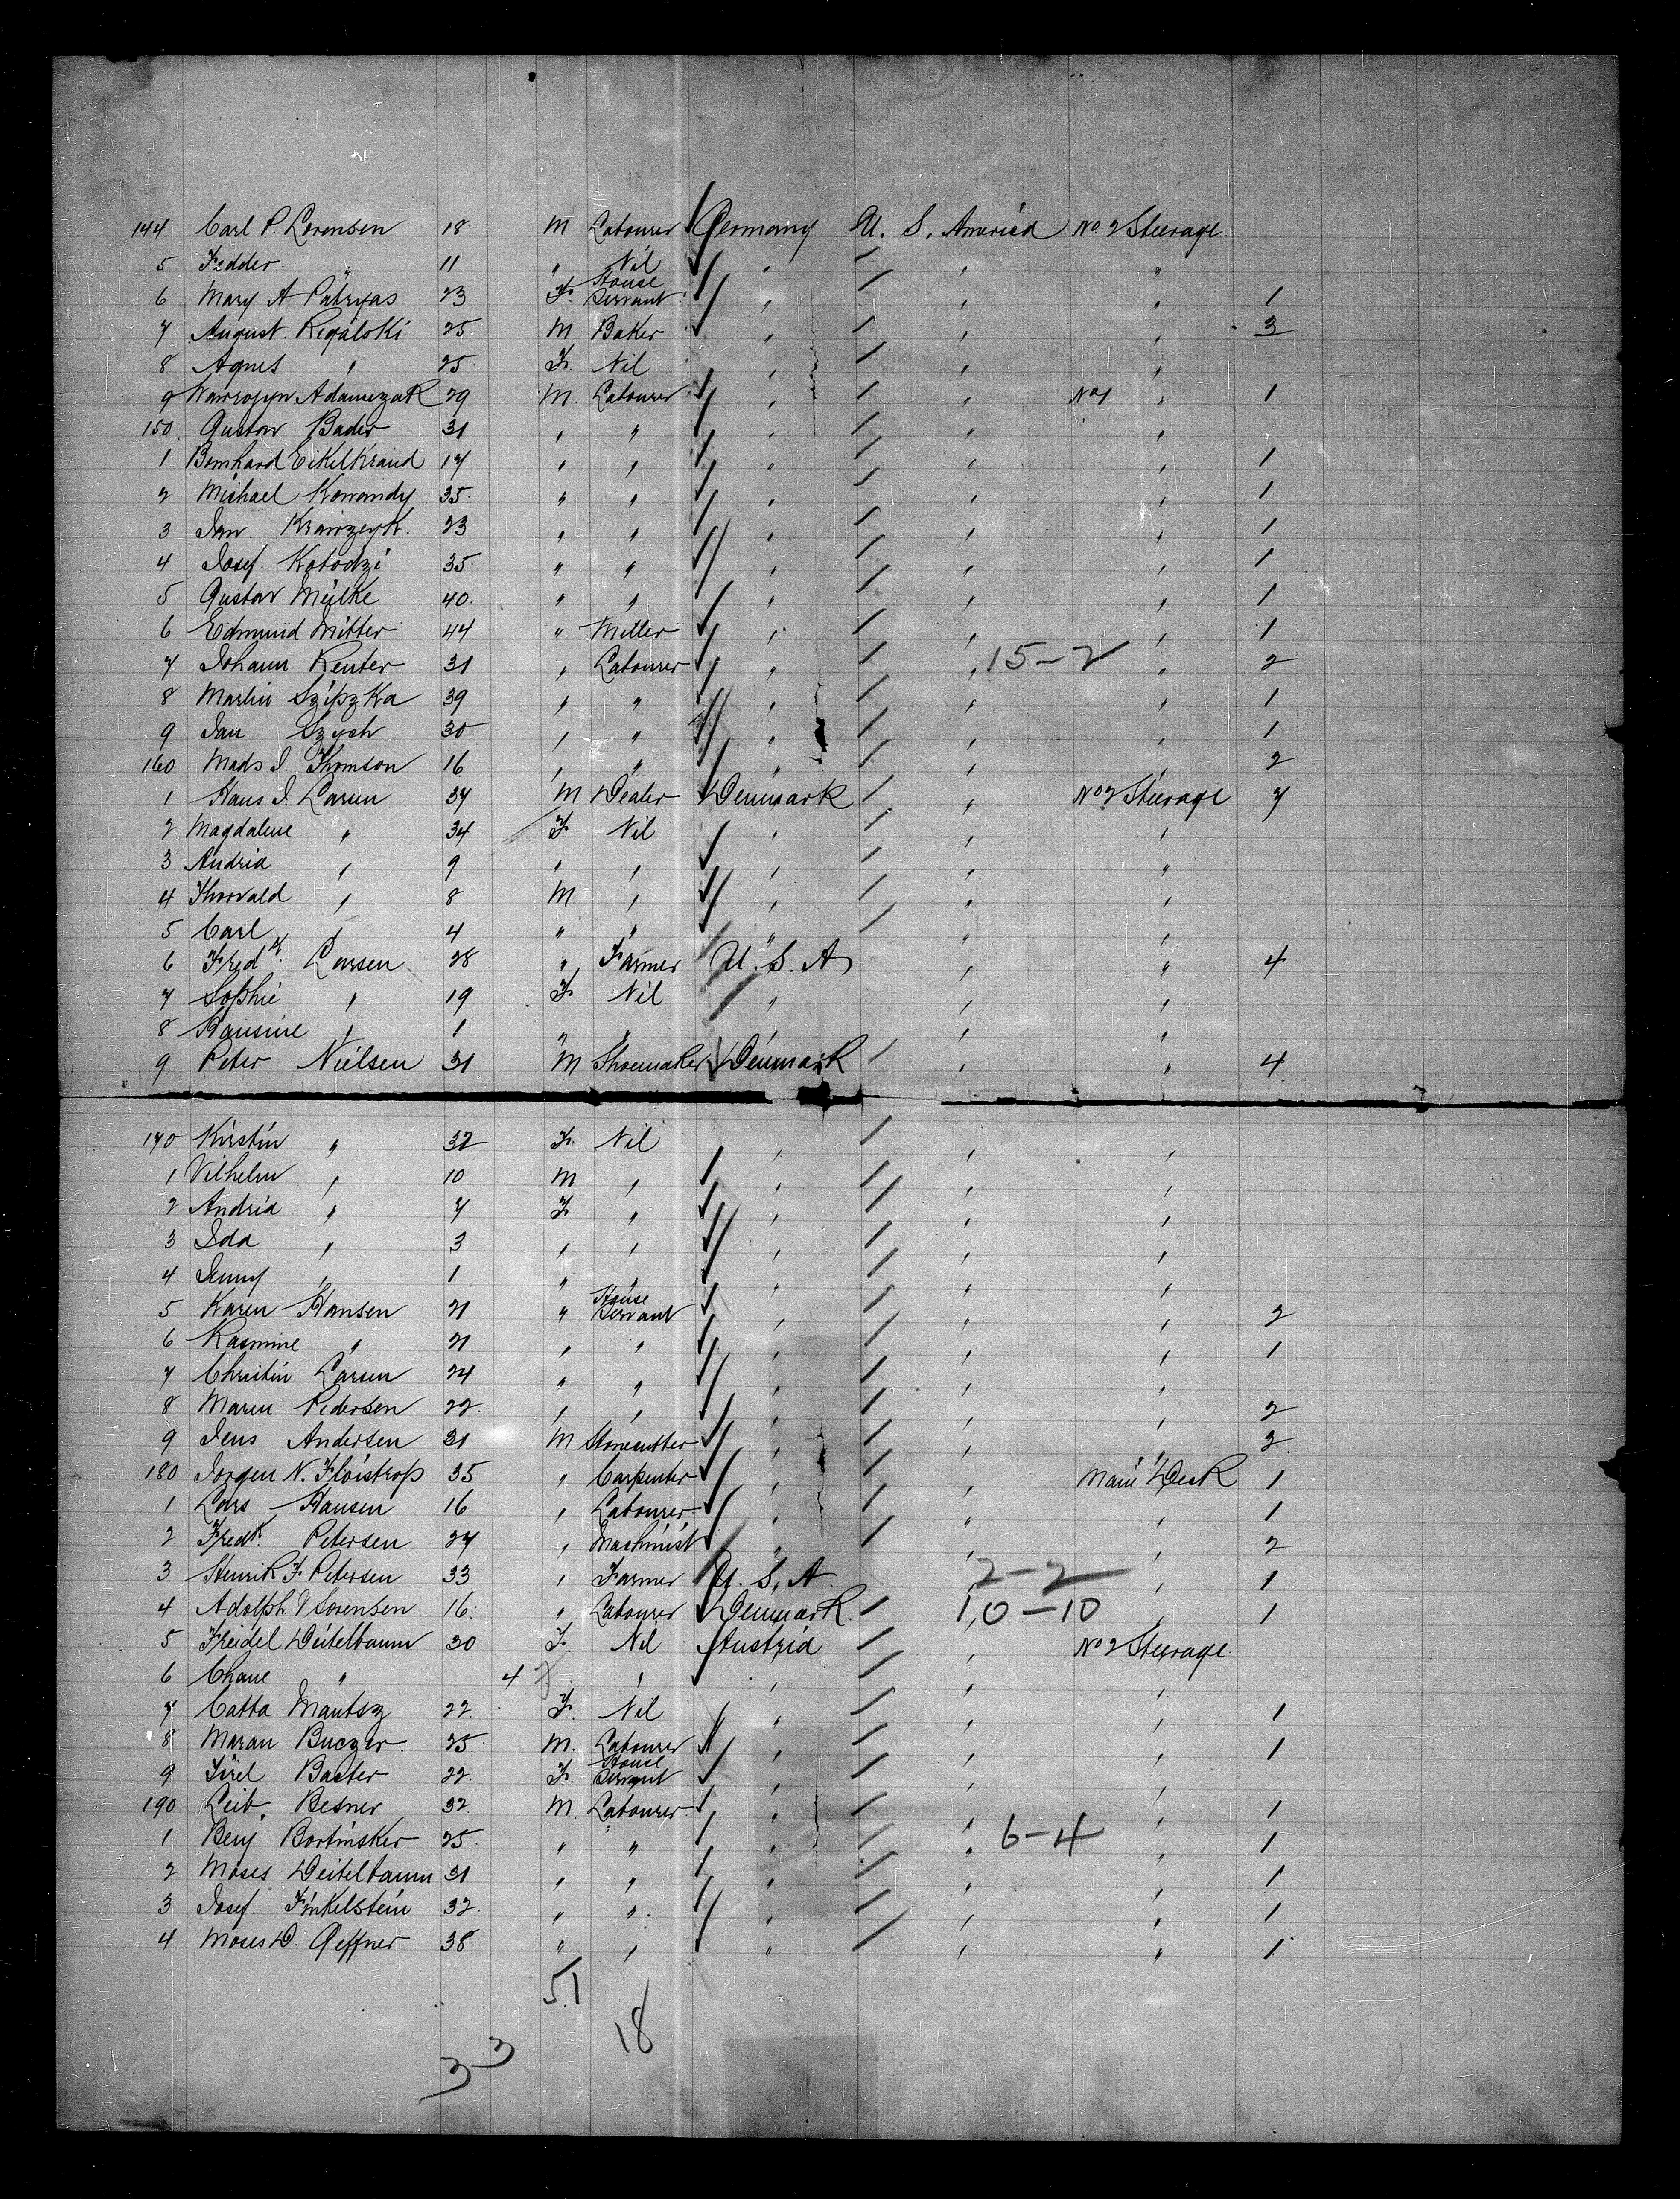 144 Carl P. Lorensen 18 M Labourer Germany U. S. America No. 2 Steerage
5 Fedder " 11 " Nil " " "
6 Mary A Patryas 23 F. House Servant " " " 1
7 August Regalski 25 M Baker " " " 3
8 Agnes " 25 F. Nil " " "
9 Adamczak 29 M. Labourer " " No 1 " 1
150 Gustav Bader 31 " " " " "
1 Bernhard Eikelkraud 17 " " " " " 1
2 Michael Konandy 35 " " " " " 1
3 Jan Krawzeyk 23 " " " " " 1
4 Josef Kotodzi 35 " " " " " 1
5 Gustav Mielke 40 " " " " " 1
6 Edmund Mitter 44 " Miller " " " 1
7 Johann Reuter 31 " Labourer " " 15-2 " 2
8 Martin Szipzka 39 " " " " " 1
9 Jan Szych 30 " " " " " 1
160 Mads J. Thomson 16 " " " " " 2
1 Hans J. Larsen 37 M Dealer Denmark " No 2 Steerage 7
2 Magdalene " 34 F Nil " " "
3 Andrea " 9 " " " " "
4 Thorvald " 8 M " " " "
5 Carl " 4 " " " " "
6 Fredk. Larsen 28 " Farmer U. S. A " " 4
7 Sophie " 19 F Nil " " "
8 Hansine " 1 " " " "
9 Peter Nielsen 31 M Shoemaker Denmark " " 4
170 Kirstin " 32 F. Nil " " "
1 Vilhelm " 10 M " " " "
2 Andrea " 7 F " " " "
3 Ida " 3 " " " " "
4 Jenny " 1 " " " " "
5 Karen Hansen 21 " House Servant " " " 2
6 Rasmine " 21 " " " " " 1
7 Christin Larsen 24 " " " " "
8 Maren Pedersen 22 " " " " " 2
9 Jens Andersen 31 M Stonecutter " " " 2
180 Jorgen N. Floistrop 35 " Carpenter " " Main Deck 1
1 Lars Hansen 16 " Labourer " " " 1
2 Fredk. Petersen 27 " Machinist " " " 2
3 Henrik F Petersen 33 " Farmer U. S. A 2-2 " 1
4 Adolph V Sorensen 16 " Labourer Denmark " 10-10 " 1
5 Freidel Deitelbaum 30 F. Nil Austria " No 2 Steerage
6 Chane " 4 " " " " "
7 Catta Mautsz 22 F. Nil " " " 1
8 Maran Buczer 25 M. Labourer " " " 1
9 Jirel Baster 22 F. House Servant " " "
190 Leib Besner 32 M. Labourer " " " 1
1 Benj Bortinsker 25 " " " " 6-4 " 1
2 Moses Deitelbaum 31 " " " " " 1
3 Josef Finkelstein 32 " " " " " 1
4 Moses D. Geffner 38 " " " " " 1
51
18
33